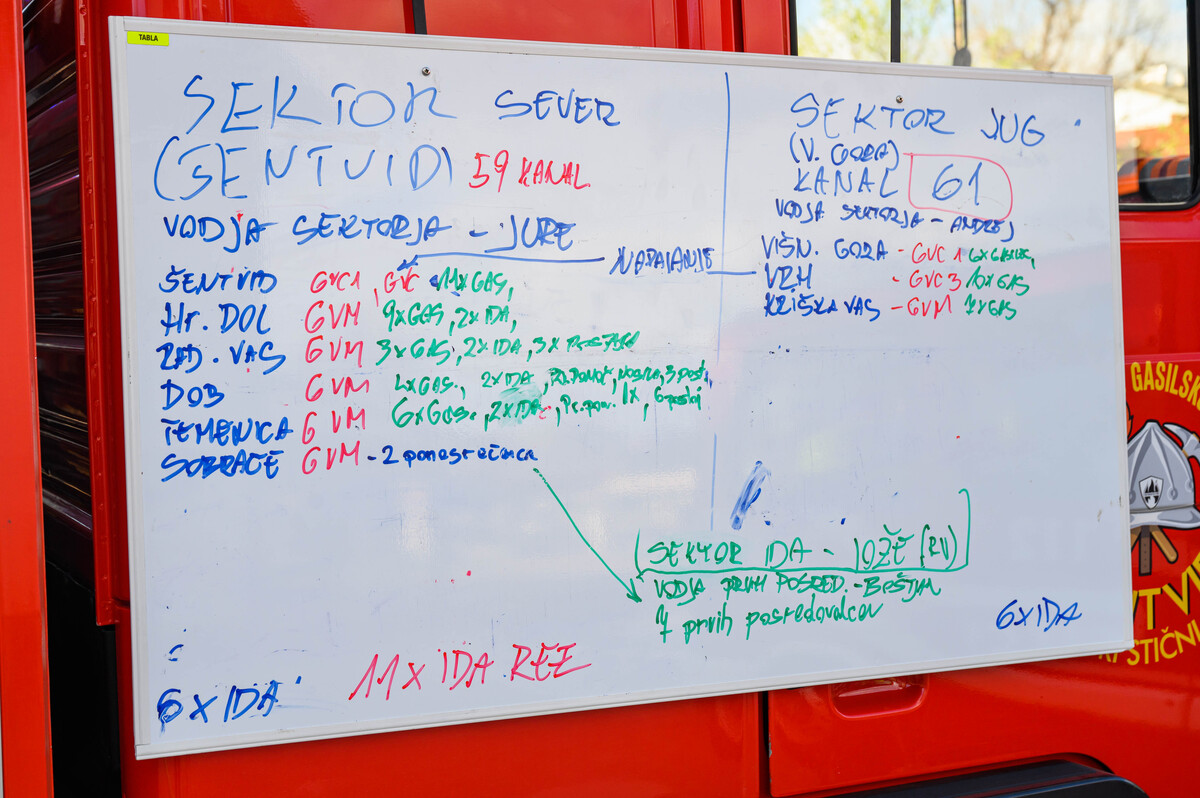 TABLA
SEKTOR SEVER
(ŠENTVID) 59 KANAL
VODJA SEKTORJA - JURE
NAPAJANJE
ŠENTVID GVC1, GVC 11xGAS,
Hr. DOL GVM 9xGAS, 2x IDA,
ZAD. VAS GVM 3xGAS, 2x IDA, 3x
DOB GVM 4xGAS., 2x IDA, NOSILA, 3 post.
TEMENICA GVM 6xGas., 2xIDA, Pr. pom. 1x, 6
SOBRAČE GVM - 2 ponesrečenca
6 x IDA
11 x IDA REZ
SEKTOR JUG
(V. GORA)
KANAL 61
VODJA SEKTORJA - ANDREJ
VIŠN. GORA - GVC 1 6x
VRH - GVC 3 10x GAS
KRIŠKA VAS - GVM 7x GAS
(SEKTOR IDA - JOŽE (RV)
VODJA PRVIH POSRED. - BOŠTJAN
7 prvih posredovalcev
6 x IDA
GASILSK
STIČN